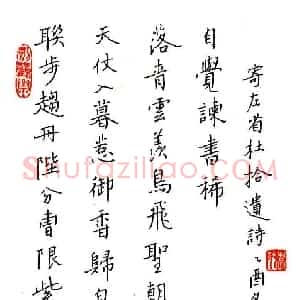 聯步趨丹陛分曹限紫
天仗入暮惹御香歸白
落青雲羨鳥飛聖朝
自覺諫書稀
寄左省杜拾遺詩乙酉
Shufaziliao.com